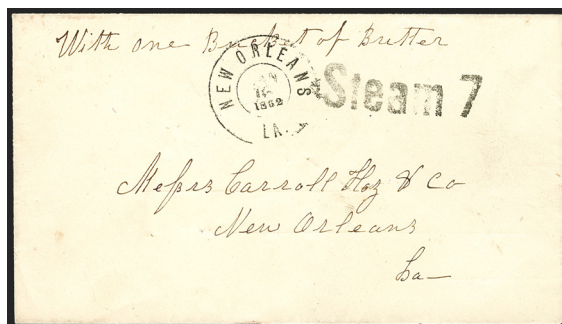 With one Bucket of Butter
NEW ORLEANS
JAN
1862
LA.
Steam 7
Messrs Carroll Hoy & Co
New Orleans
La